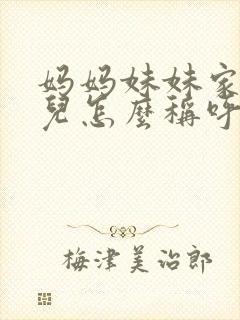 妈妈妹妹家
兒怎麼稱呼
梅津美治郎